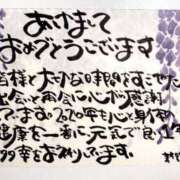 あけまして
おめでとうございます
皆様と大切な時間がすごせた
出会と再会に心から感謝
です。2020年も心と身体の
健康を一番に元気で良い1年
幸をお祈りしてます。